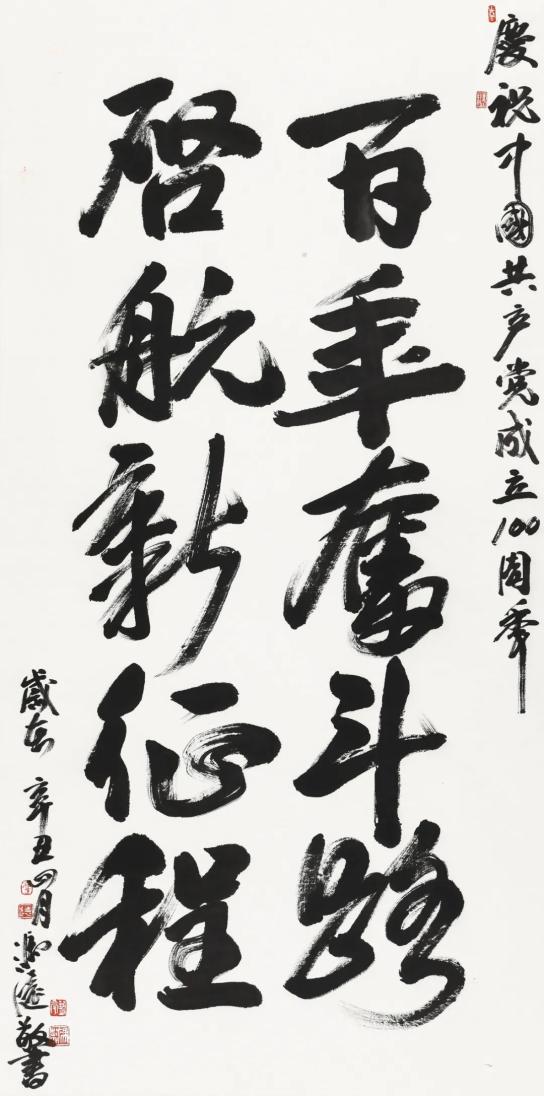 慶祝中國共产党成立100周年
百年奮斗路
啓航新征程
歲在辛丑四月樂遊敬書